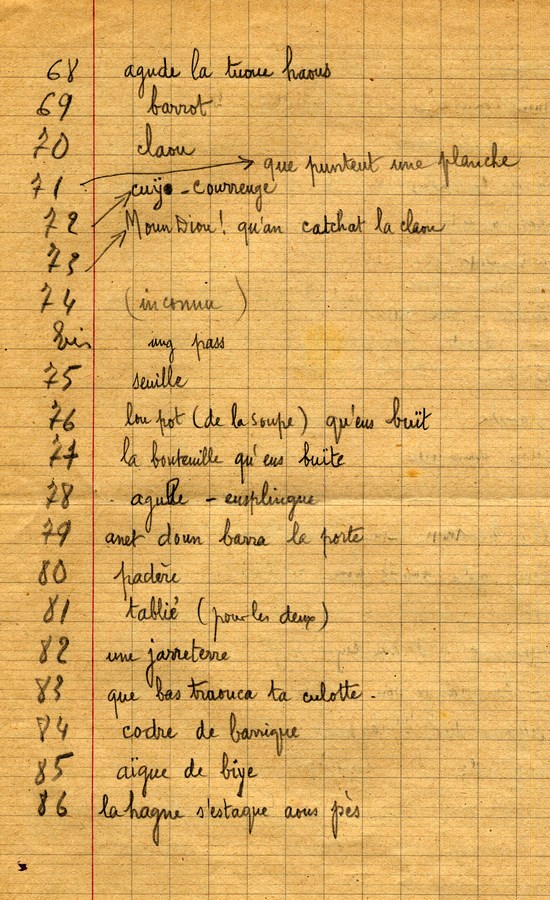 68 agude la tuoue haous
69 barrot
70 claou
71 que punteut une planche
72 cuyo - courrenge
73 Moun Diou! qu'an catchat la claou
74 (inconnu)
bis ung pass
75 seuille
76 lou pot (de la soupe) qu'eus buït
77 la bouteuille qu'eus buïte
78 agulle - eusplingue
79 anet doun barra la porte
80 padère
81 tablié (pour les deux)
82 une jarreterre
83 que bas traouca ta culotte.
84 codre de barrique
85 aïgue de biye
86 la hagne s'estaque aous pès